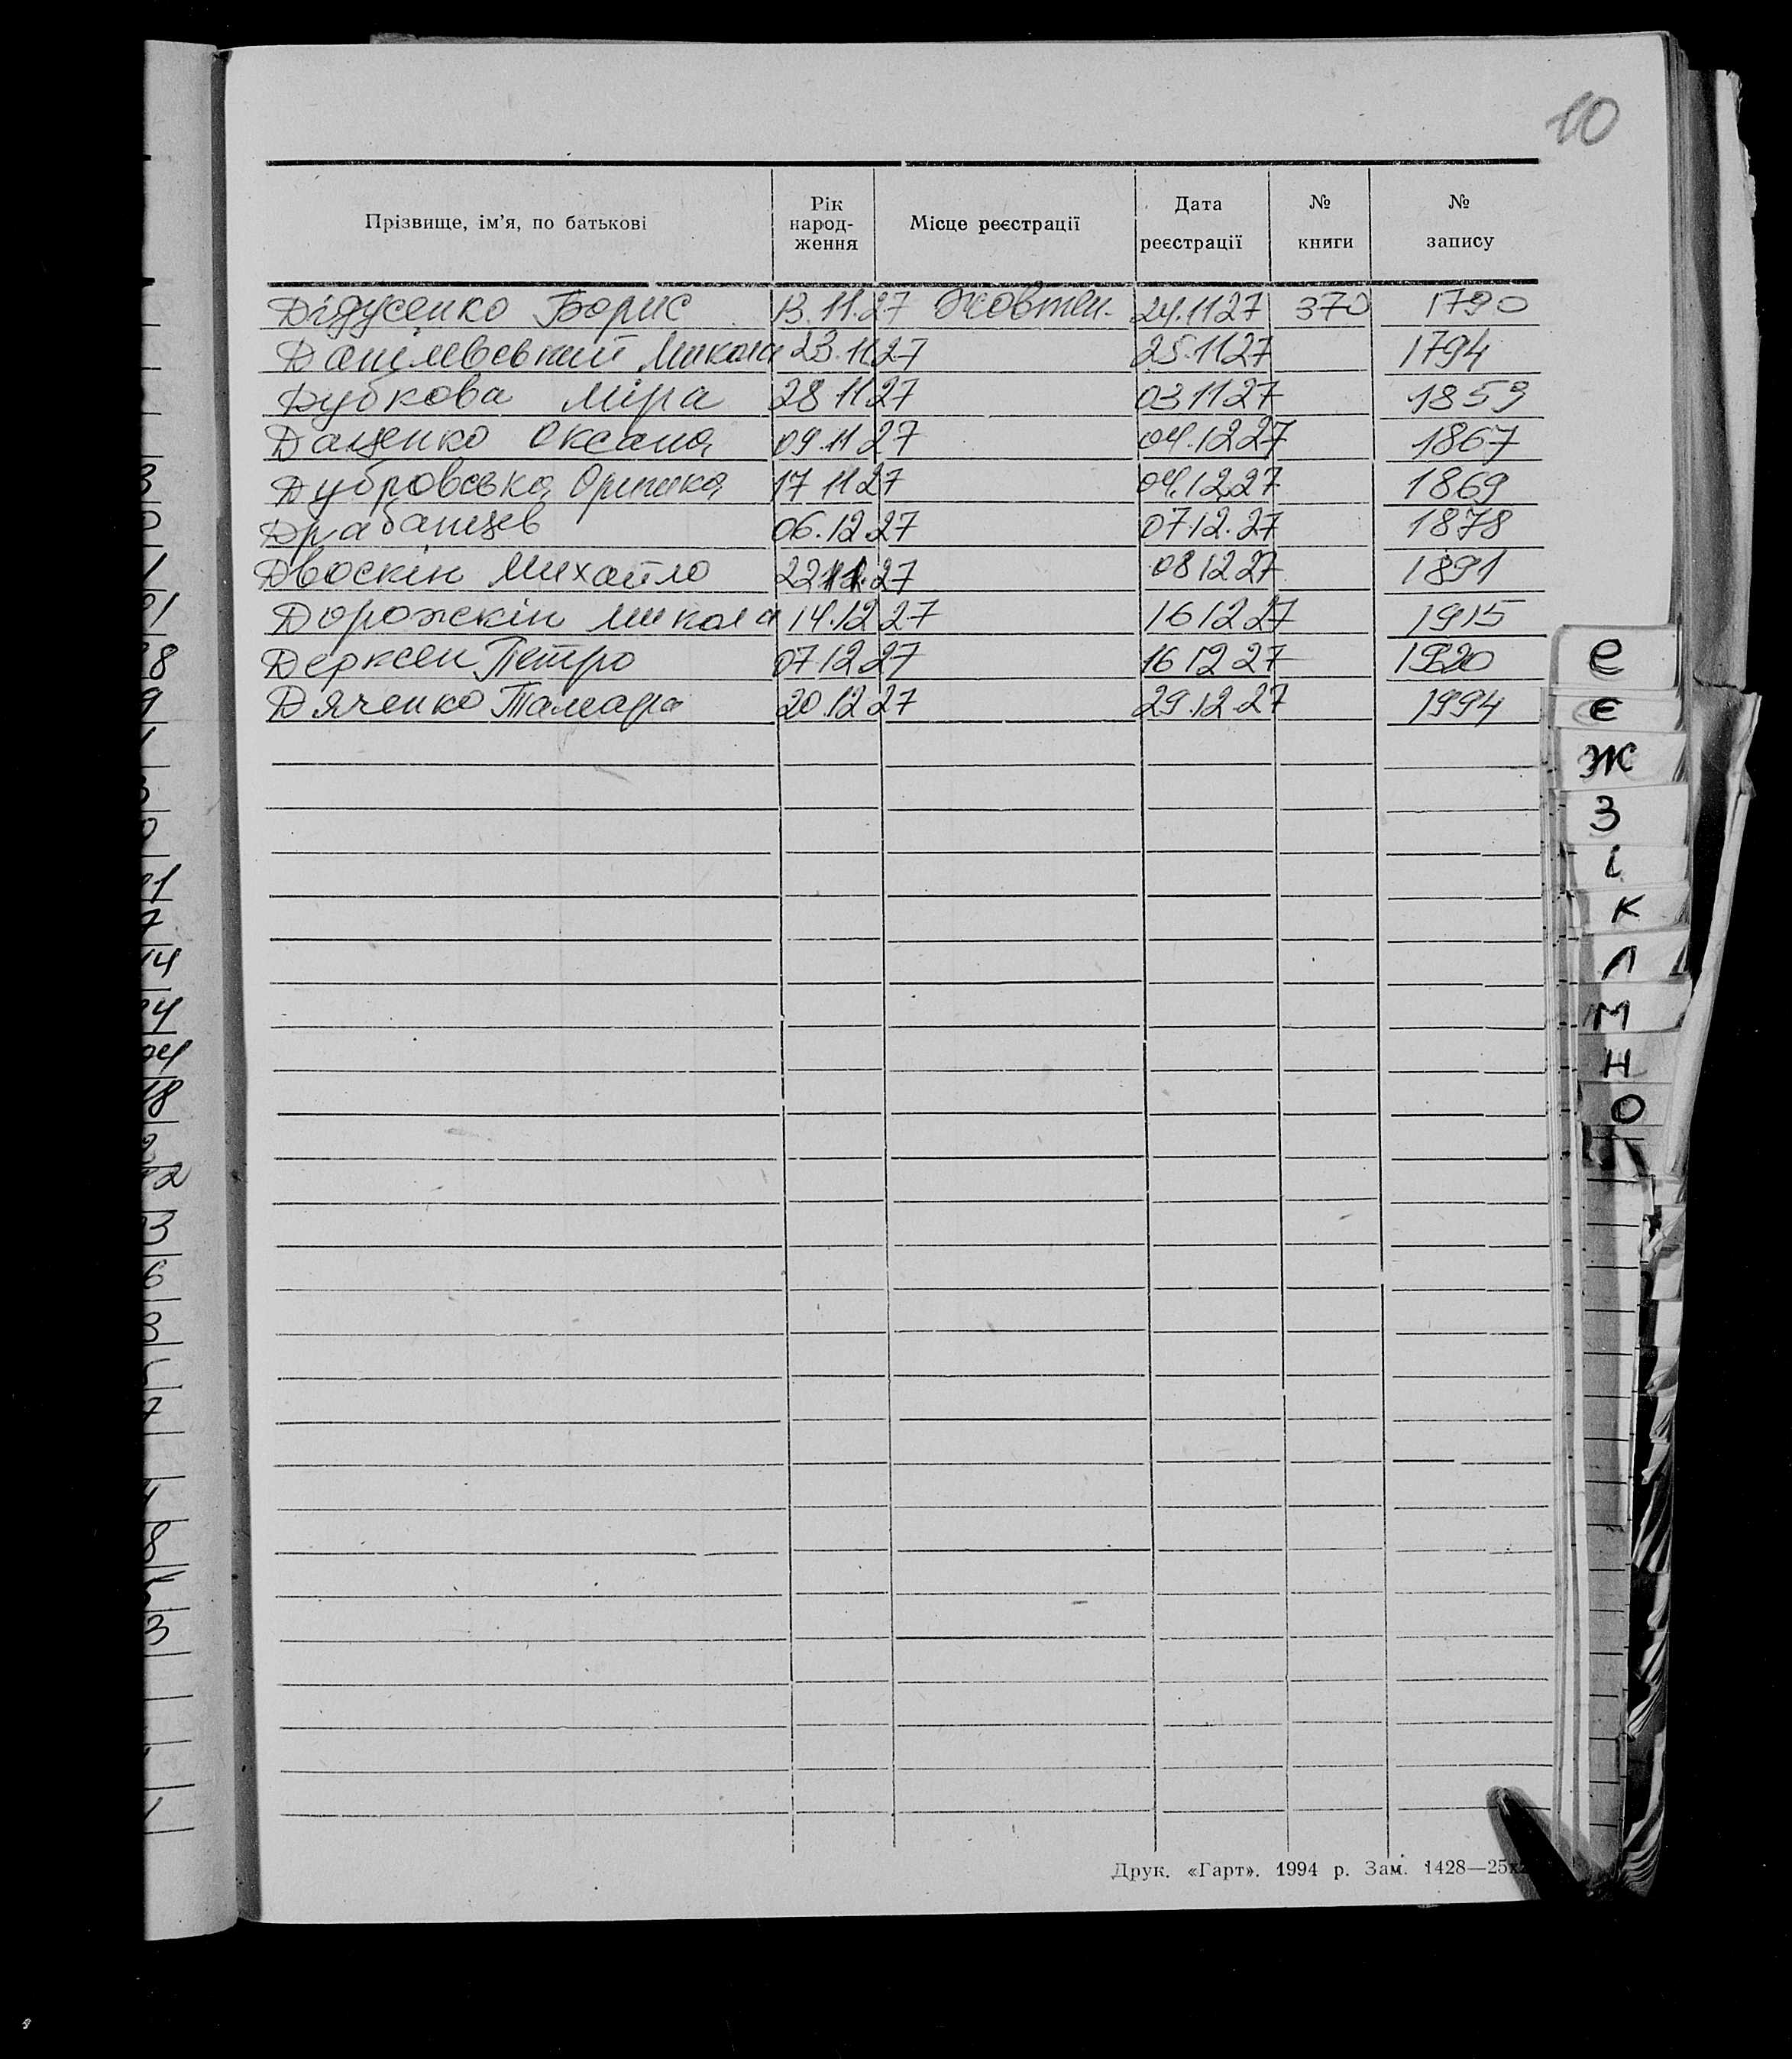 10
Прізвище, ім'я, по батькові Рік народ-ження Місце реєстрації Дата реєстрації № книги № запису
Дідусенко Борис 13.11.27 Жовтен. 24.11 27 370 1790
Данілевський Микола 23.11 27 25.11 27 1794
Дубкова Міра 28 11 27 03 11 27 1859
Даценко Оксана 09.11 27 04.12 27 1867
Дубровська Оринка 17 11 27 04.12.27 1869
Драбанцев 06.12.27 07.12.27 1878
Двоскін Михайло 22 11.27 08 12 27 1891
Дорожскін Микола 14.12 27 16 12 27 1915
Дерксен Петро 07 12 27 16 12 27 1920
Дяченко Тамара 20.12 27 29.12.27 1994
Е
Є
Ж
З
І
К
Л
М
Н
О
Друк. «Гарт». 1994 р. Зам. 1428—25х